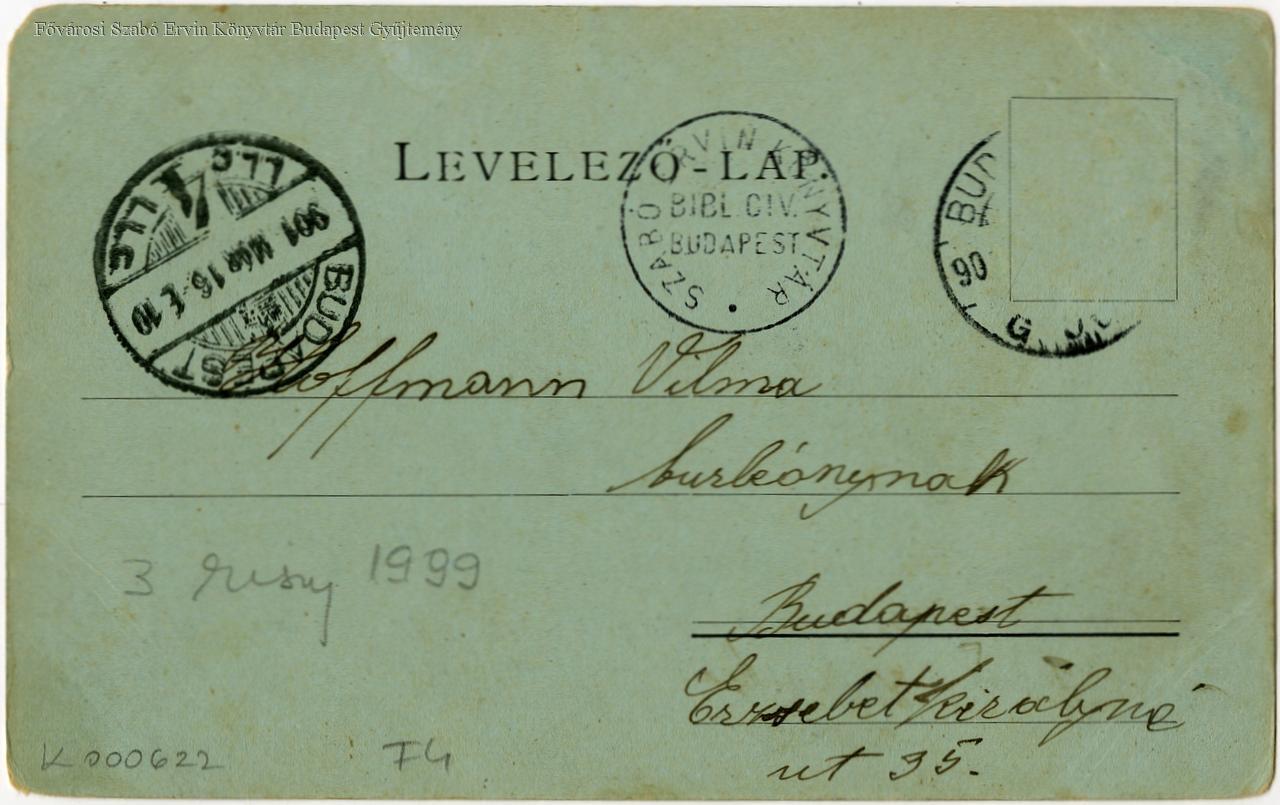 Fővárosi Szabó Ervin Könyvtár Budapest Gyűjtemény
LEVELEZŐ-LAP.
SZABÓ ERVIN KÖNYVTÁR
BIBL. CIV.
BUDAPEST
BUDAPEST
901 MÁR 16
BUD
90
Hoffmann Vilma
Budapest
Erzsebet királyné
ut 35.
3 1999
K 000622 F4